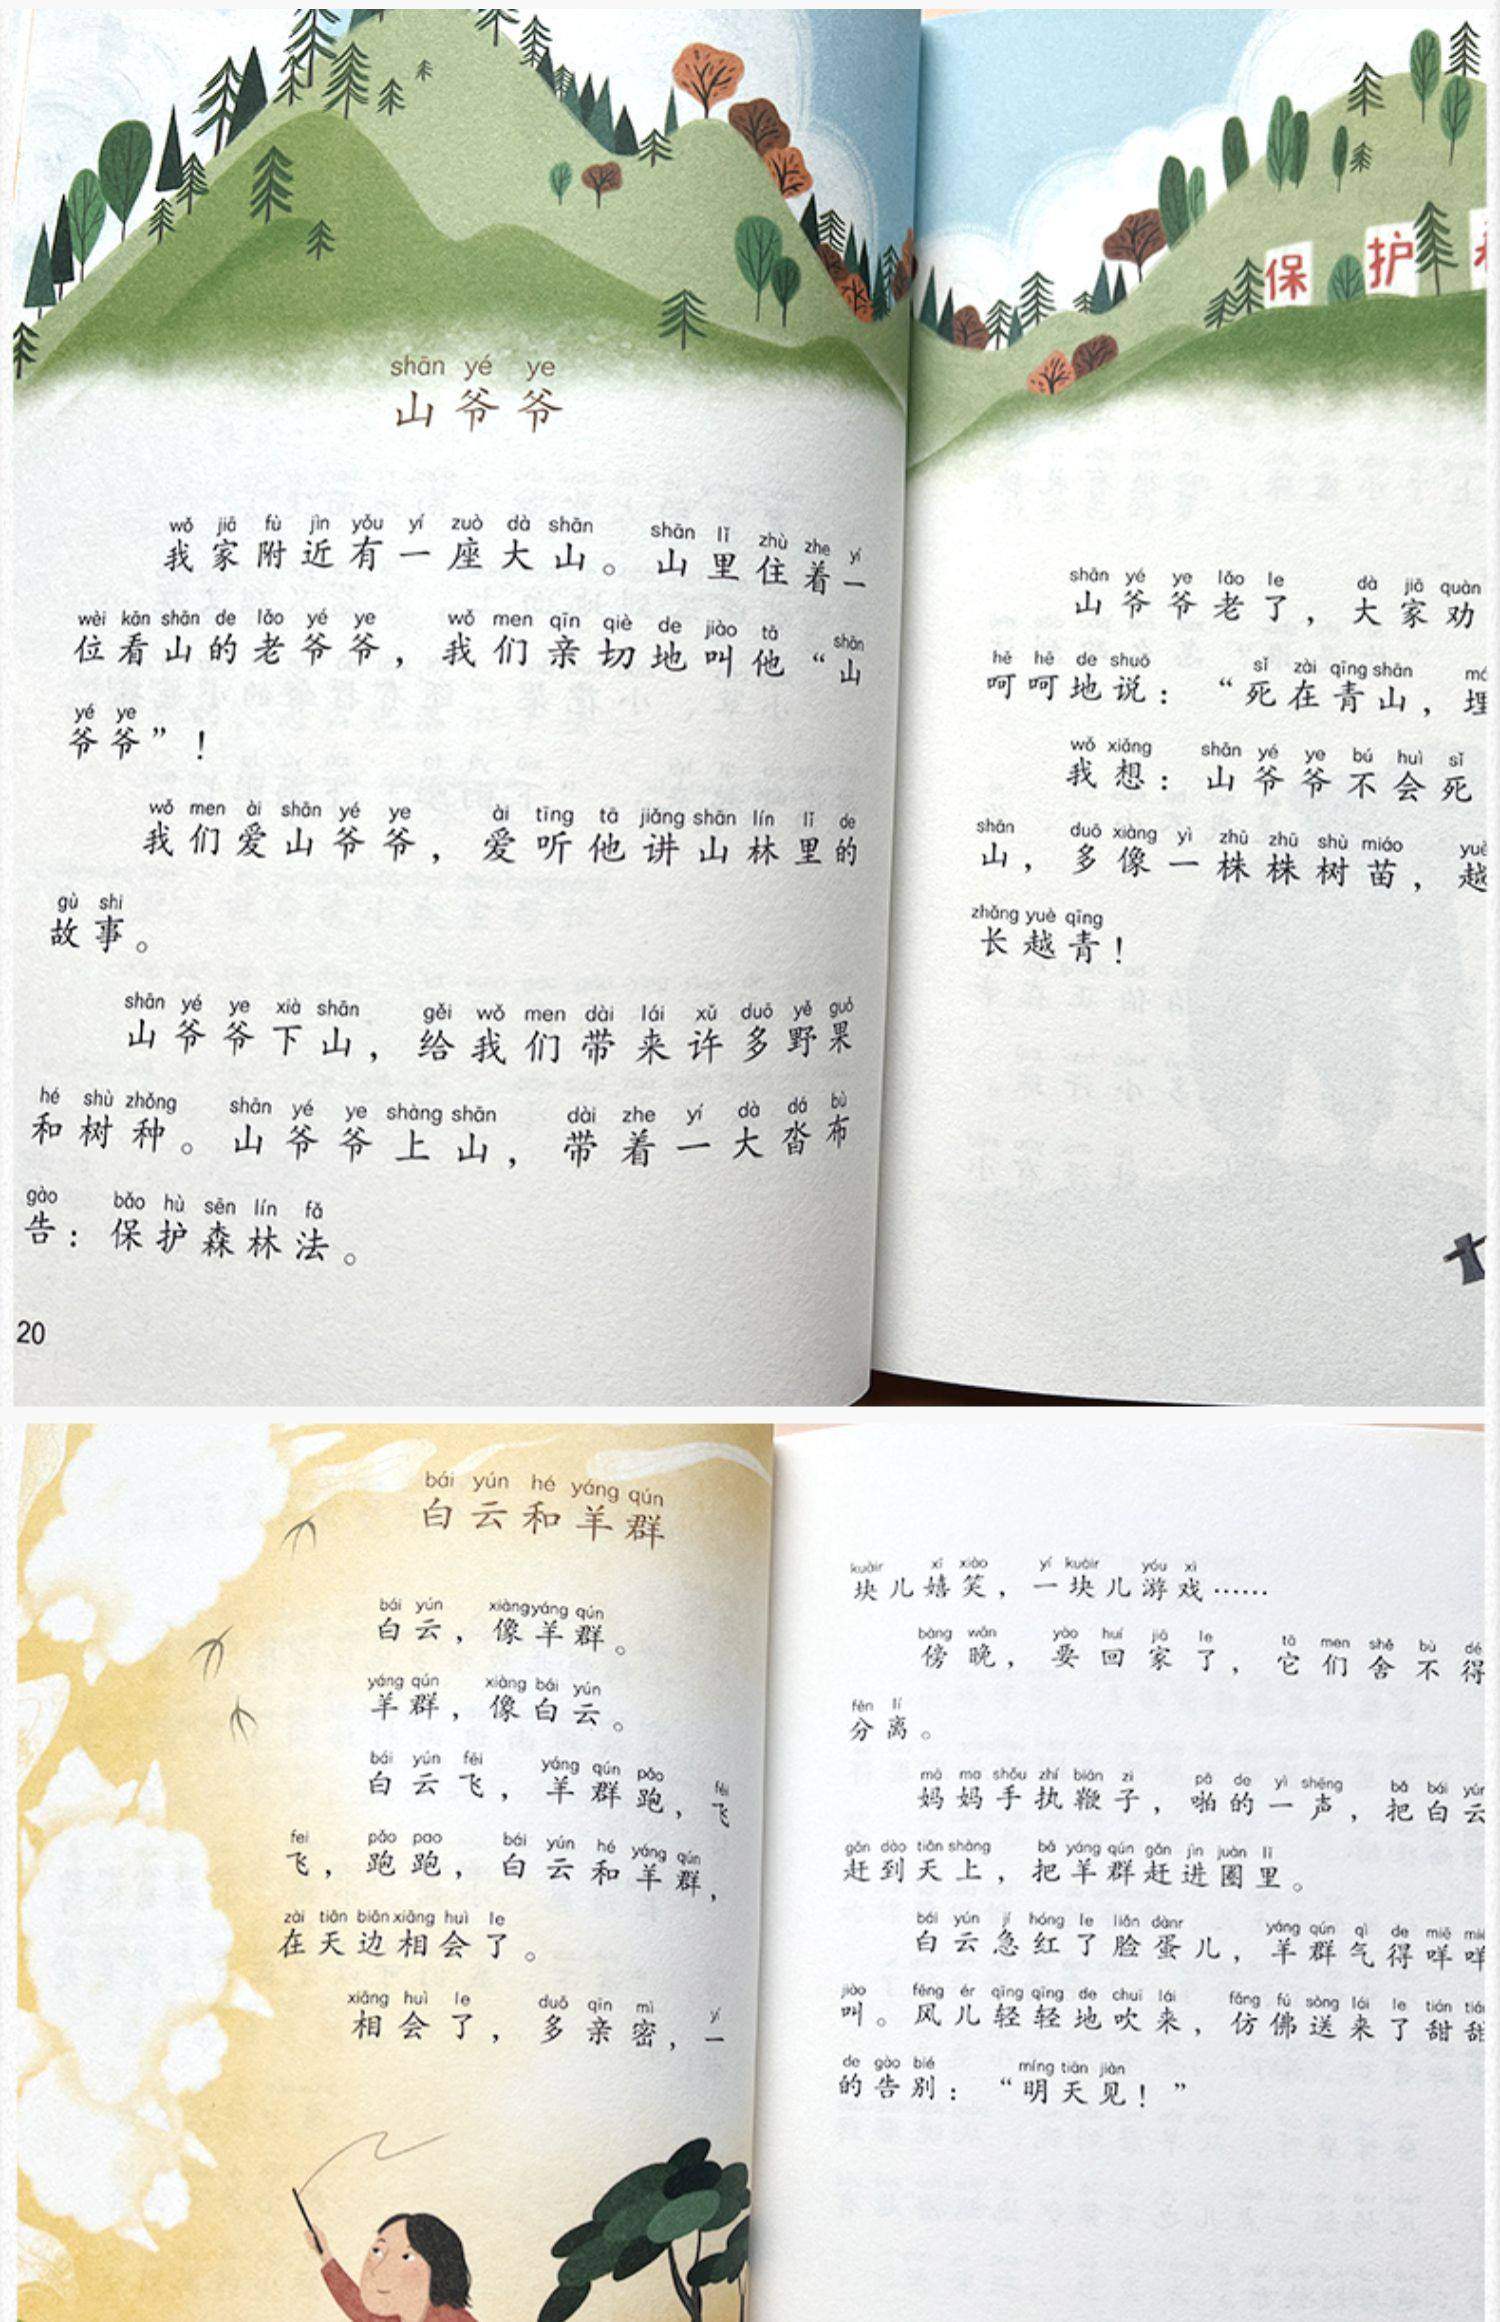 保护
shān yé ye
山爷爷
wǒ jiā fù jìn yǒu yí zuò dà shān shān lǐ zhù zhe yí
我家附近有一座大山。山里住着一
wèi kān shān de lǎo yé ye wǒ men qīn qiè de jiào tā shān
位看山的老爷爷，我们亲切地叫他“山
yé ye
爷爷”！
wǒ men ài shān yé ye ài tīng tā jiǎng shān lín lǐ de
我们爱山爷爷，爱听他讲山林里的
gù shi
故事。
shān yé ye xià shān gěi wǒ men dài lái xǔ duō yě guǒ
山爷爷下山，给我们带来许多野果
hé shù zhǒng shān yé ye shàng shān dài zhe yí dà dá bù
和树种。山爷爷上山，带着一大沓布
gào bǎo hù sēn lín fǎ
告：保护森林法。
20
shān yé ye lǎo le dà jiā quàn
山爷爷老了，大家劝
hē hē de shuō sǐ zài qīng shān
呵呵地说：“死在青山，埋
wǒ xiǎng shān yé ye bú huì sǐ
我想：山爷爷不会死
shān duō xiàng yì zhū zhū shù miáo yuè
山，多像一株株树苗，越
zhǎng yuè qīng
长越青！
bái yún hé yáng qún
白云和羊群
bái yún xiàng yáng qún
白云，像羊群。
yáng qún xiàng bái yún
羊群，像白云。
bái yún fēi yáng qún pǎo fēi
白云飞，羊群跑，飞
fei pǎo pao bái yún hé yáng qún
飞，跑跑，白云和羊群，
zài tiān biān xiāng huì le
在天边相会了。
xiāng huì le duō qīn mì yí
相会了，多亲密，一
kuàir xī xiào yí kuàir yóu xì
块儿嬉笑，一块儿游戏……
bàng wǎn yào huí jiā le tā men shě bù dé
傍晚，要回家了，它们舍不得
fēn lí
分离。
mā ma shǒu zhí biān zi pā de yì shēng bǎ bái yún
妈妈手执鞭子，啪的一声，把白云
gǎn dào tiān shàng bǎ yáng qún gǎn jìn juàn lǐ
赶到天上，把羊群赶进圈里。
bái yún jí hóng le liǎn dànr yáng qún qì de miē miē
白云急红了脸蛋儿，羊群气得咩咩
jiào fēng ér qīng qīng de chuī lái fǎng fú sòng lái le tián tián
叫。风儿轻轻地吹来，仿佛送来了甜甜
de gào bié míng tiān jiàn
的告别：“明天见！”